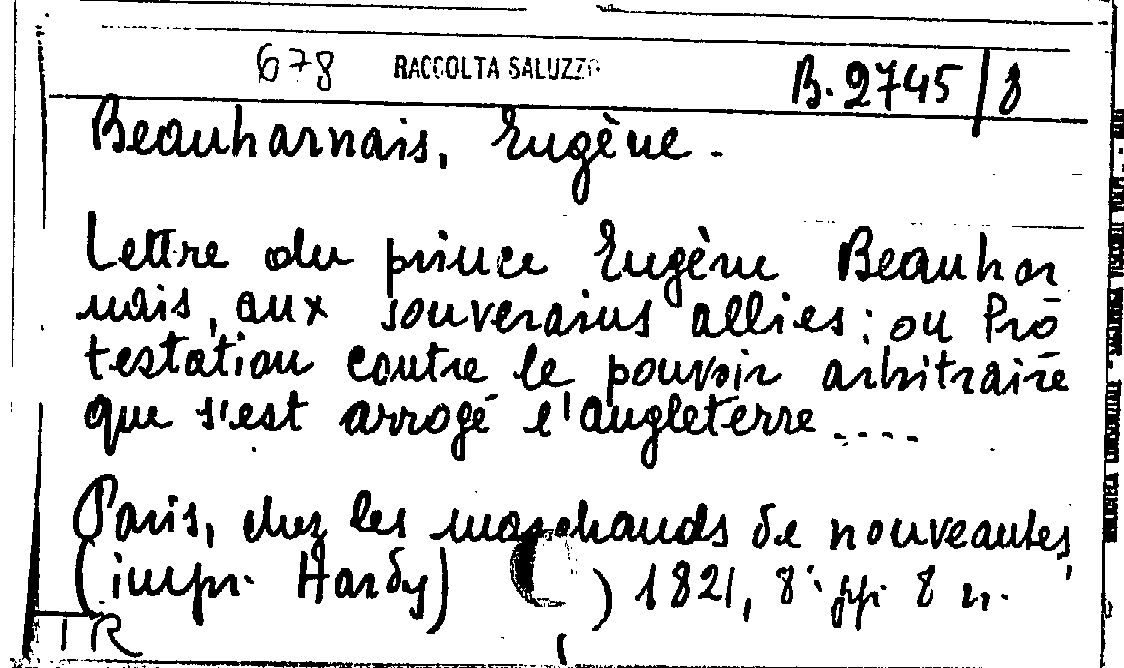 678 RACCOLTA SALUZZO B.2745/8
Beauharnais, Eugène.
Lettre du prince Eugène Beauhar
nais, aux souverains allies: ou Pro
testation contre le pouvoir arbitraire
que s'est arrogé l'Angleterre....
Paris, chez les marchands de nouveautes,
(impr. Hardy) ) 1821, 8° pp. 8 n.
TR